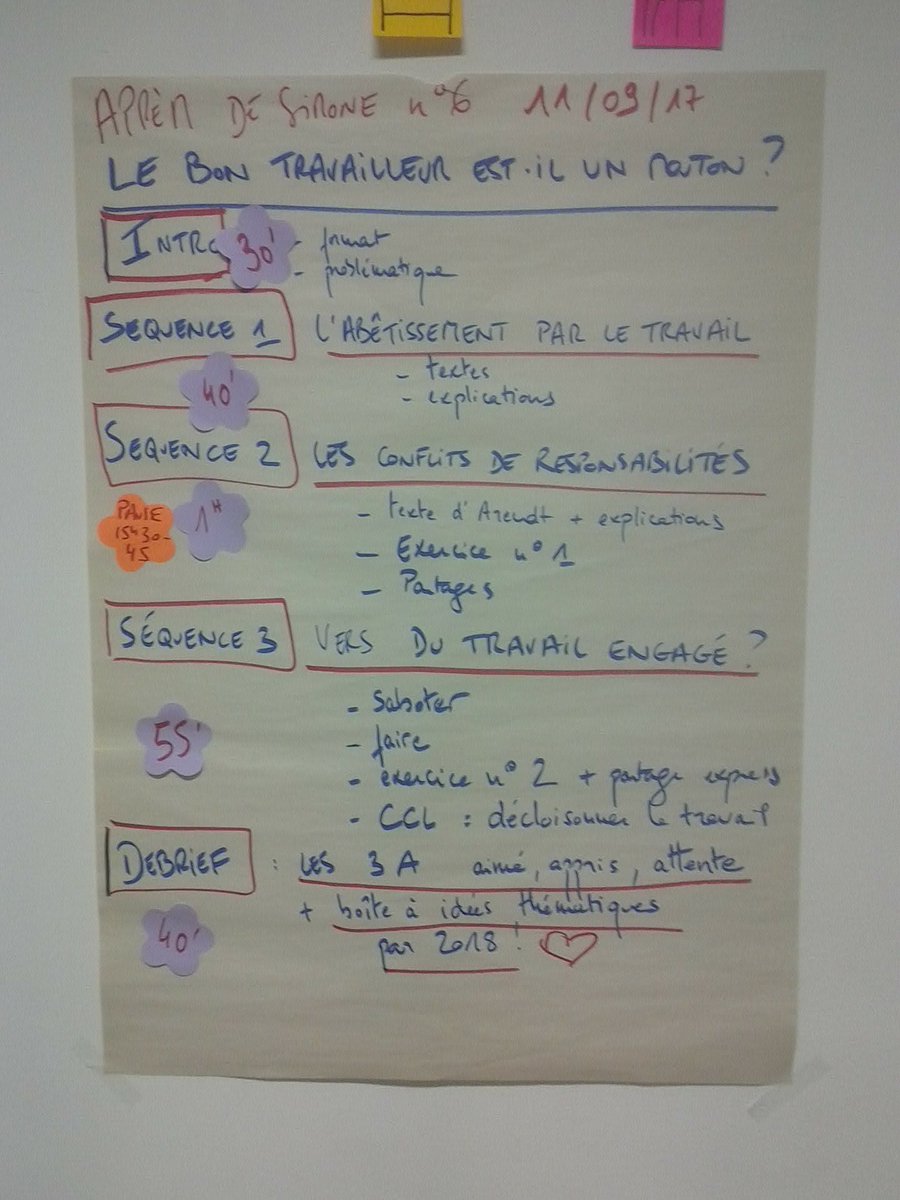 APRÈM DE SIMONE n°6 11/09/17
LE BON TRAVAILLEUR EST-IL UN MOUTON ?
INTRO 30' - format
- problématique
SEQUENCE 1 L'ABÊTISSEMENT PAR LE TRAVAIL
- textes
40' - explications
SEQUENCE 2 LES CONFLITS DE RESPONSABILITÉS
PAUSE 15H30-45 1H - texte d'Arendt + explications
- Exercice n° 1
- Partages
SÉQUENCE 3 VERS DU TRAVAIL ENGAGÉ ?
- Saboter
55' - faire
- exercice n° 2 + partage express
- CCL : décloisonner le travail
DEBRIEF : LES 3 A aimé, appris, attente
+ boîte à idées thématiques
40' par 2018 !